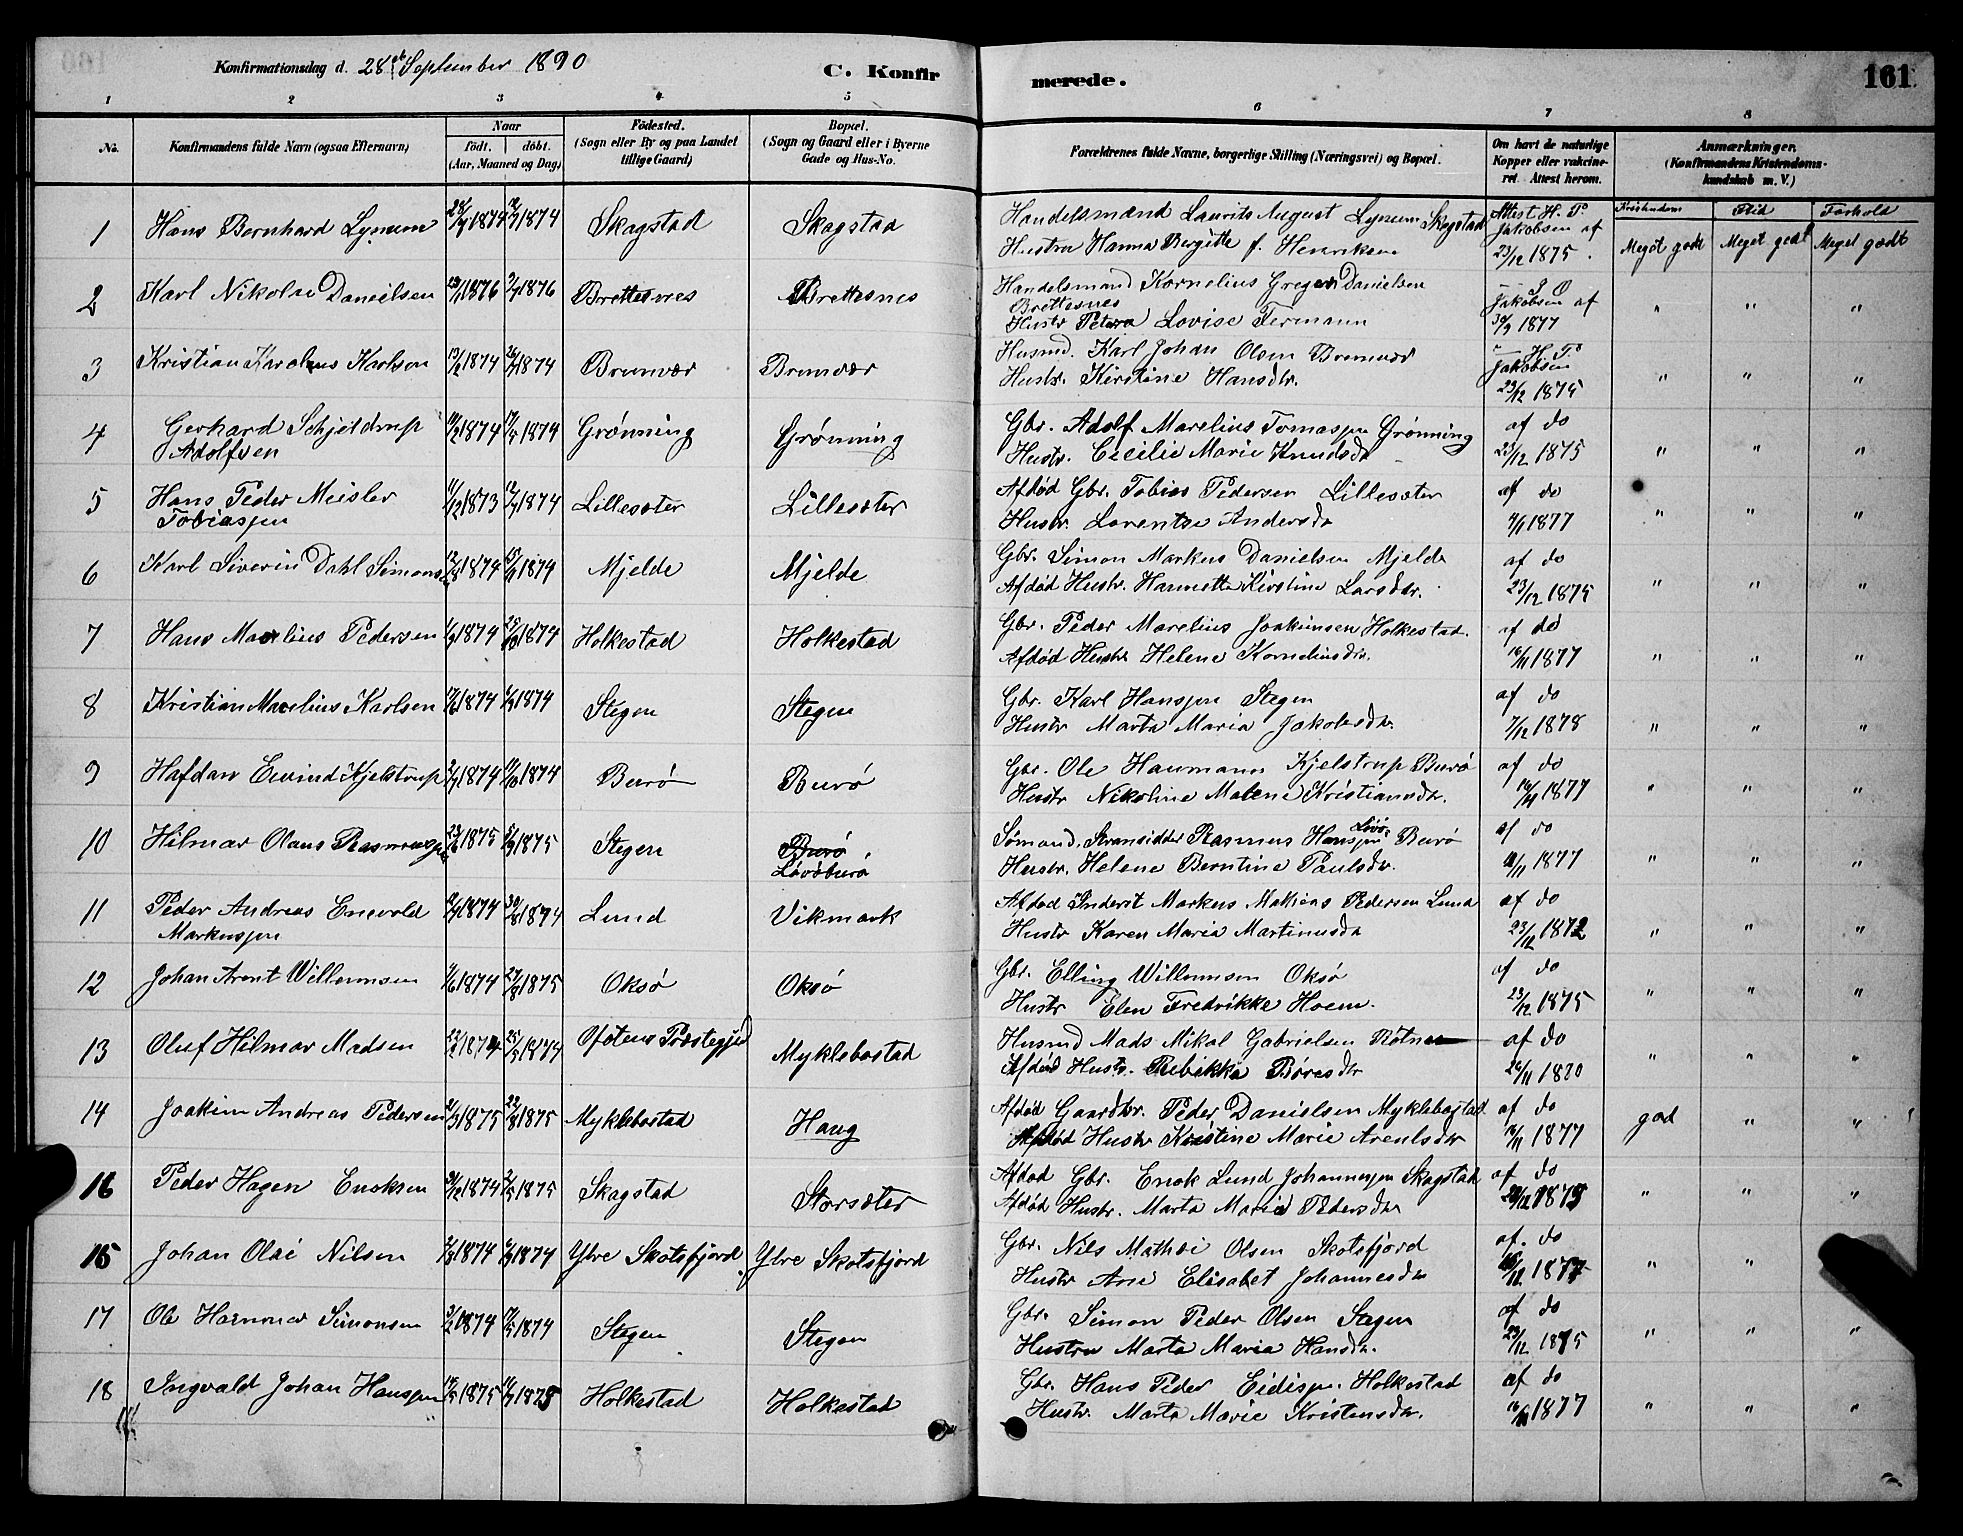 Konfirmationsdag d. 28de September 1890
C. Konfir
merede.
161.
1 2 3 4 5 6 7 8
No.
Konfirmandens fulde Navn (ogsaa Efternavn)
Naar
födt. döbt.
(Aar, Maaned og Dag)
Födested.
(Sogn eller By og paa Landet
tillige Gaard)
Bopæl.
(Sogn og Gaard eller i Byerne
Gade og Hus-No.
Forældrenes fulde Navne, borgerlige Stilling (Næringsvei) og Bopæl.
Om havt de naturlige
Kopper eller vakcine-
ret. Attest herom.
Anmærkninger.
(Konfirmandens Kristendoms-
kundskab m. V.)
Kristendom Flid Forhold
1 Hans Bernhard Lynum 1874 1874 Skagstad Skagstad Handelsmand Laurits August Lynum Skagstad Attest H. P.
Jakobsen af
Hustru Hanna Birgitte f. Henriksen 23/12 1875. Meget godt Meget godt Meget godt
2 Karl Nikolai Danielsen 1876 1876 Brettesnes Brettesnes Handelsmand Kornelius Greger Danielsen
Brettesnes Jakobsen af
Hustr Petera Lovise Fermann 30/9 1877 " " "
3 Kristian Karolius Karlsen 13/2 1874 26/4 1874 Brunvær Brunvær Husmd. Karl Johan Olsen Brunvær H. P.
Jakobsen
Hustr. Kirstine Hansdtr. 23/12 1875 " " "
4 Gerhard Schjeldrup 1874 1874 Grønning Grønning Gbr. Adolf Marelius Tomassen Grønning af do
Adolfsen Hustr. Cecilie Marie Knudsdr 23/12 1875 " " "
5 Hans Peder Meisler 1873 1874 Lillesæter Lillesæter Afdød Gbr. Tobias Pedersen Lillesæter af do
Tobiassen Hustr. Lorentse Andersdr 1877 " " "
6 Karl Siverin Dahl Simons 1874 1874 Mjelde Mjelde Gbr. Simon Markus Danielsen Mjelde af do
Afdød Hustr. Hannetta Kirstine Larsdtr. 23/12 1875 " " "
7 Hans Marelius Pedersen 1874 1874 Holkestad Holkestad Gbr. Peder Marelius Joakimsen Holkestad. af do
Afdød Hustr Helene Korneliusdtr. 16/11 1877 " " "
8 Kristian Marelius Karlsen 1874 1874 Stegen Stegen Gbr. Karl Hanssen Stegen af do
Hustr Marta Maria Jakobsdtr. 7/12 1878 " " "
9 Hafdan Eivind Kjelstrup 1874 1874 Burø Burø Gbr. Ole Haumann Kjelstrup Burø af do
Hustr Nikoline Malene Kristiansdtr. 16/11 1877 " " "
10 Hilmar Olaus Rasmussen 1875 1875 Stegen Burø Sømand, Strandsidder Rasmus Hanssen Løvø Burø af do
Løvøburø Hustr. Helene Berntine Paulsdtr. 1877 " " "
11 Peder Andreas Enevold 1874 1874 Lund Vikmark Afdød Inderst Markus Matias Pedersen Lund af do
Markussen Hustr Karen Maria Martinusdr 23/12 1872 " " "
12 Johan Arent Willumsen 1874 1875 Oksø Oksø Gbr. Elling Willumsen Oksø af do
Hustr Elen Fredrikka Hoem. 23/12 1875 " " "
13 Oluf Hilmar Madsen 1874 1874 Ofotens Præstegjeld Myklebostad Husmd Mads Mikal Gabrielsen Røtnes af do
Afdød Hustr. Rebikka Børesdtr 26/11 1880 " " "
14 Joakim Andreas Pedersen 1875 1875 Myklebostad Haug Afdød Gaardbr. Peder Danielsen Myklebostad af do god " "
Afdød Hustr Kristine Marie Arentsdtr 16/11 1877
16 Peder Hagen Enoksen 1874 1875 Skagstad Storsæter Afdød Gbr. Enok Lund Johannessen Skagstad af do
Afdød Hustr. Marta Maria Pedersdtr 1875 " " "
15 Johan Olai Nilsen 1874 1874 Ytre Skotsfjord Ytre Skotsfjord Gbr. Nils Mathæi Olsen Skotsfjord af. do
Hustr Ane Elisabet Johannesdtr 1877 " " "
17 Ole Hammer Simonsen 1874 1874 Stegen Stegen Gbr. Simon Peder Olsen Stegen af do
Hustru Marta Maria Hansdtr. 23/12 1875 " " "
18 Ingvald Johan Hanssen 1875 1875 Holkestad Holkestad Gbr. Hans Peder Eidissen Holkestad af do
Hustr. Marta Marie Kristensdtr. 1877 " " "